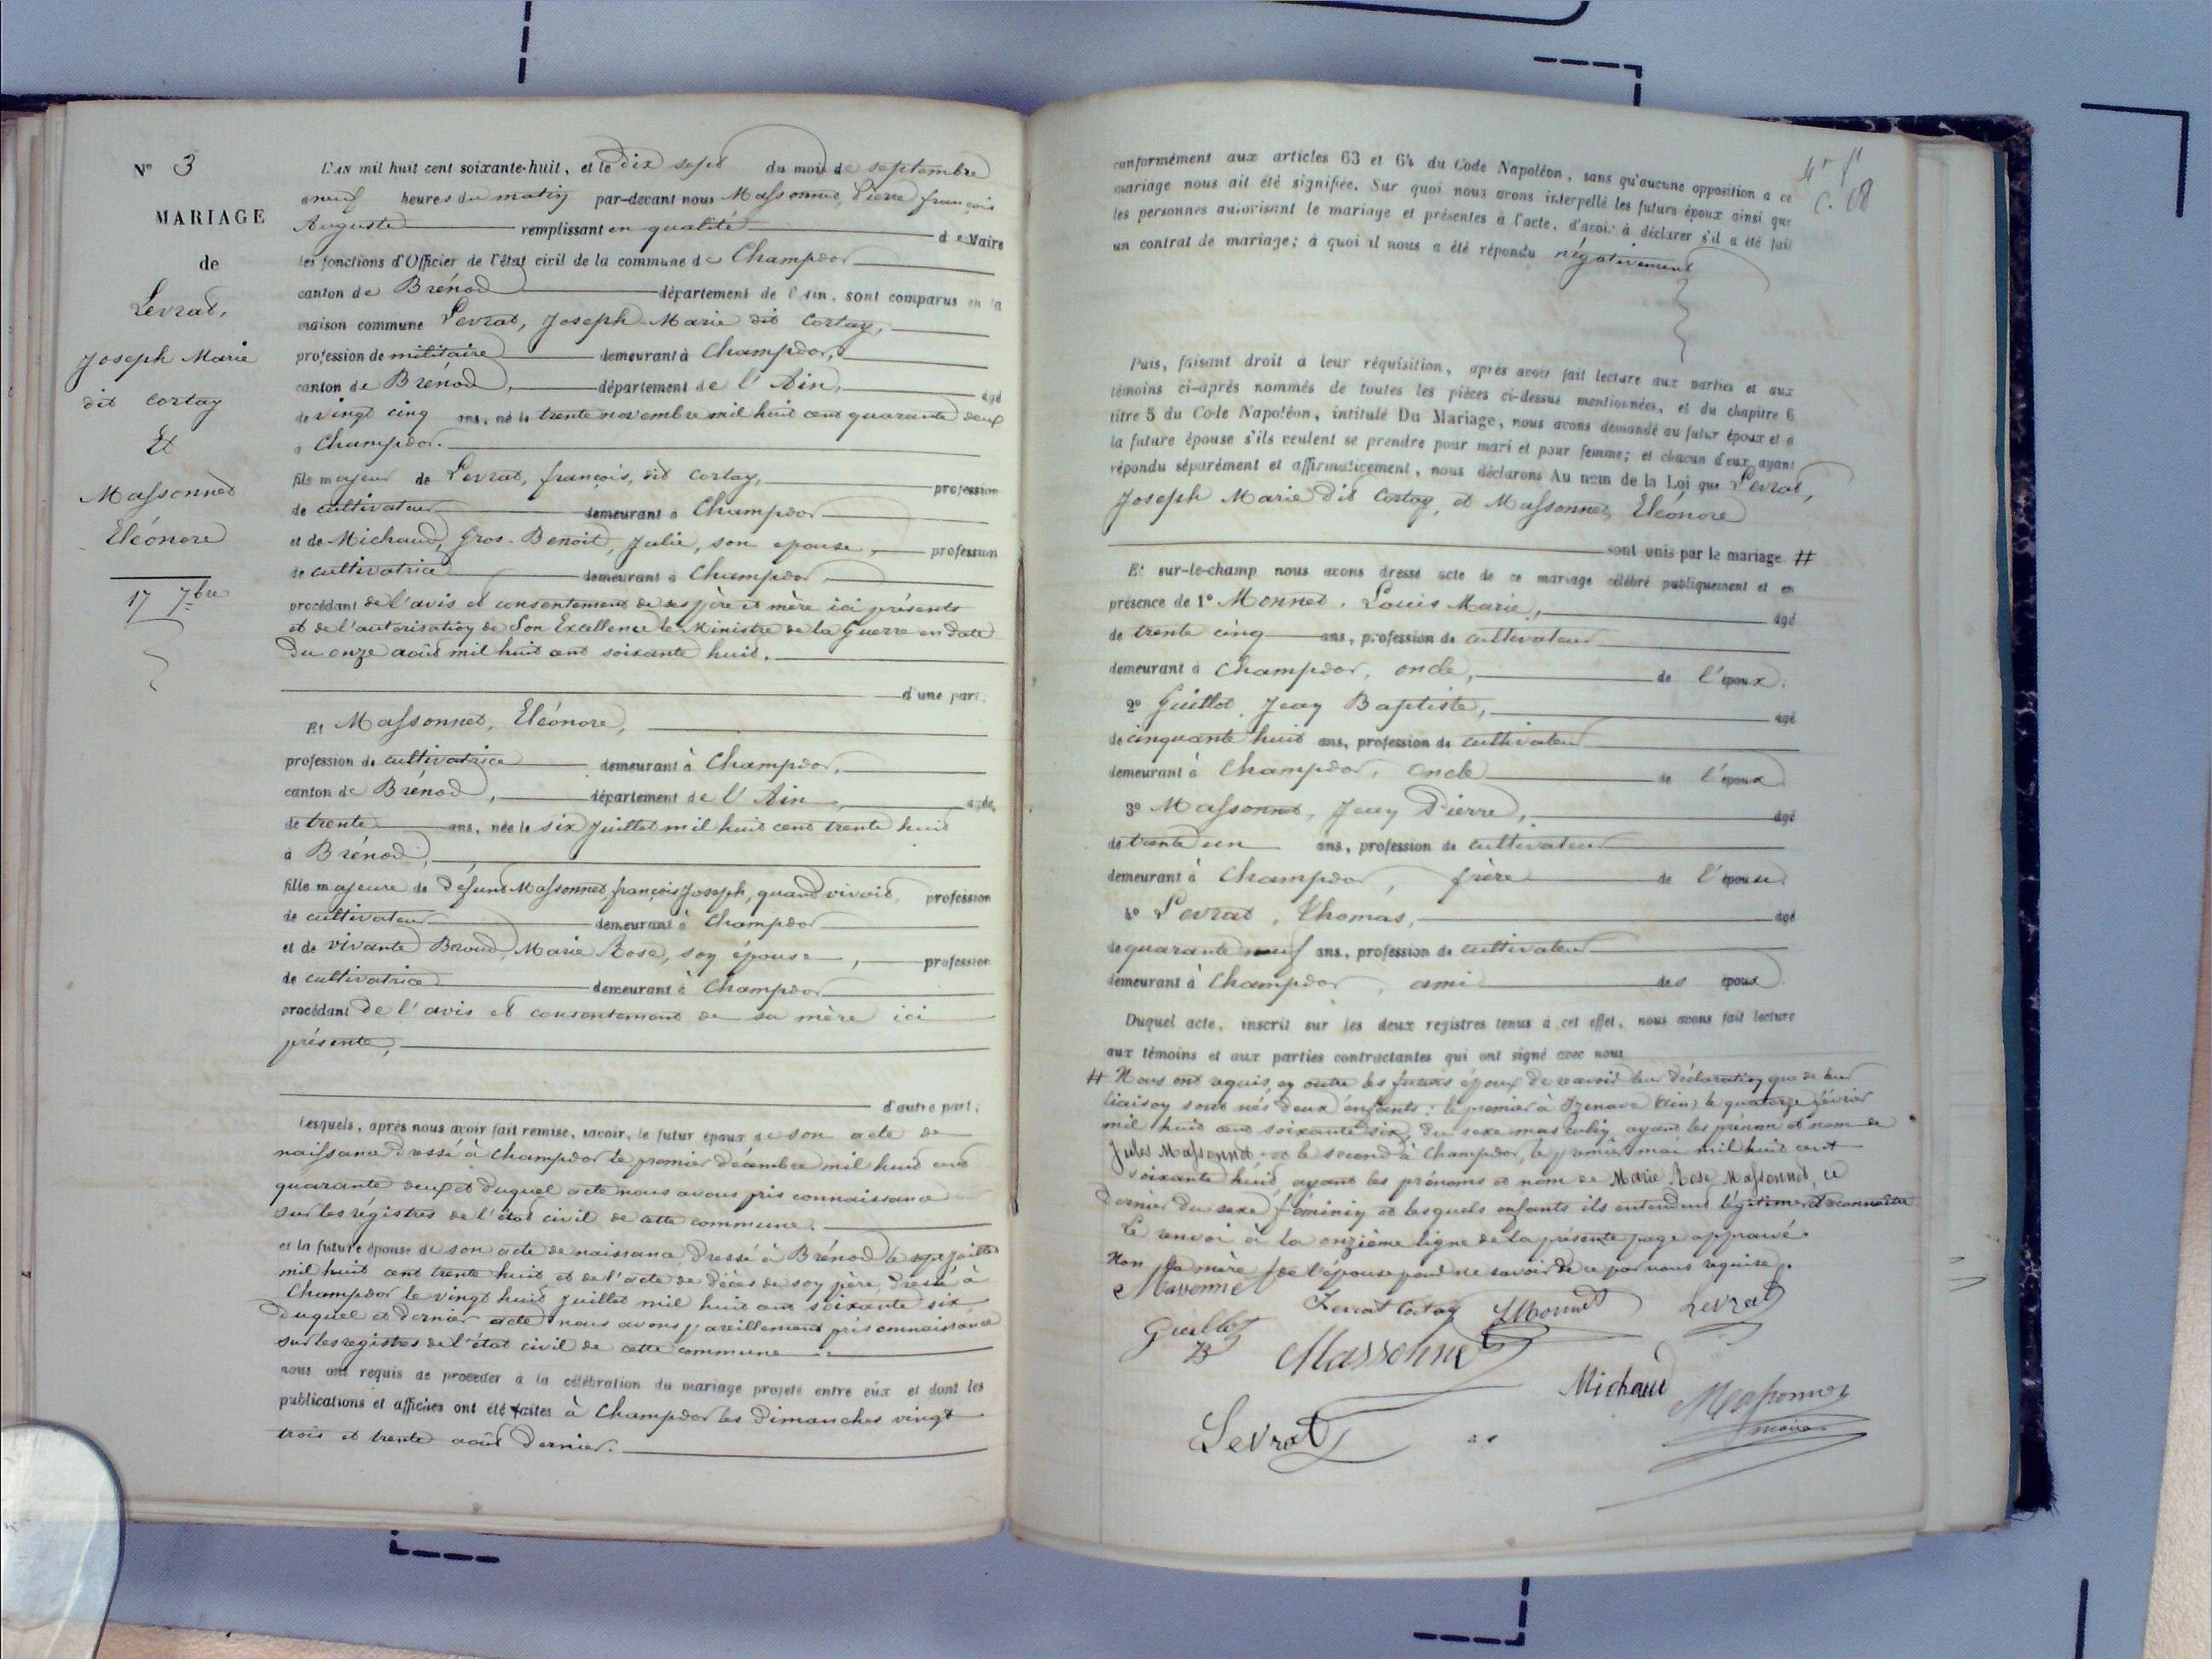 N° 3
MARIAGE
de
Levrat,
Joseph Marie
dit Cortay
Et
Massonnet
Eléonore
17 7bre
L'AN mil huit cent soixante-huit, et le dix sept du mois de septembre
à neuf heures du matin par-devant nous Massonnet, Pierre françois
Auguste remplissant en qualité de Maire
les fonctions d'Officier de l'état civil de la commune de Champdor
canton de Brénod département de l'Ain, sont comparus en la
maison commune Levrat, Joseph-Marie dit Cortay,
profession de militaire demeurant à Champdor,
canton de Brénod, département de l'Ain, âgé
de vingt cinq ans, né le trente novembre mil huit cent quarante deux
à Champdor.
fils majeur de Levrat, françois, dit Cortay, profession
de cultivateur demeurant à Champdor
et de Michaud, Gros-Benoit, Julie, son epouse, profession
de cultivatrice demeurant à Champdor,
procédant de l'avis et consentement de ses père et mère ici présents
et de l'autorisation de Son Excellence le Ministre de la Guerre en date
du onze août mil huit cent soixante huit,
d'une part.
Et Massonnet, Eléonore,
profession de cultivatrice demeurant à Champdor,
canton de Brénod, département de l'Ain, agée
de trente ans, née le six Juillet mil huit cent trente huit
à Brénod,
fille majeure de défunt Massonnet, françois Joseph, quand vivait, profession
de cultivateur demeurant à Champdor
et de vivante Beroud, Marie Rose, son épouse, profession
de cultivatrice demeurant à Champdor
procédant de l'avis et consentement de sa mère ici
présente,
d'autre part;
Lesquels, après nous avoir fait remise, savoir, le futur époux de son acte de
naissance dressé à Champdor le premier décembre mil huit cent
quarante deux et duquel acte nous avons pris connaissance
sur les régistres de l'état civil de cette commune.
et la future épouse de son acte de naissance dressé à Brénod le sept Juillet
mil huit cent trente huit et de l'acte de décès de son père, dressé à
Champdor le vingt huit Juillet mil huit cent soixante six
duquel et dernier acte nous avons pareillement pris connaissance
sur les registres de l'état civil de cette commune
nous ont requis de procéder à la célébration du mariage projeté entre eux et dont les
publications et affiches ont été faites à Champdor les dimanches vingt
trois et trente août dernier.
conformément aux articles 63 et 64 du Code Napoléon, sans qu'aucune opposition a ce
mariage nous ait été signifiée. Sur quoi nous avons interpellé les futurs époux ainsi que
les personnes autorisant le mariage et présentes à l'acte, d'avoir à déclarer s'il a été fait
un contrat de mariage; à quoi il nous a été répondu négativement
Puis, faisant droit à leur réquisition, après avoir fait lecture aux parties et aux
témoins ci-après nommés de toutes les pièces ci-dessus mentionnées, et du chapitre 6
titre 5 du Code Napoléon, intitulé Du Mariage, nous avons demandé au futur époux et à
la future épouse s'ils veulent se prendre pour mari et pour femme; et chacun d'eux ayant
répondu séparément et affirmativement, nous déclarons Au nom de la Loi que Levrat,
Joseph Marie dit Cortay, et Massonnet, Eléonore
sont unis par le mariage #
Et sur-le-champ nous avons dressé acte de ce mariage célébré publiquement et en
présence de 1° Monnet, Louis Marie, âgé
de trente cinq ans, profession de cultivateur
demeurant à Champdor, oncle, de l'époux.
2° Guillot, Jean Baptiste, agé
de cinquante huit ans, profession de cultivateur
demeurant à Champdor, oncle de l'époux
3° Massonnet, Jean Pierre, agé
de trente un ans, profession de cultivateur
demeurant à Champdor, frère de l'épouse
4° Levrat, Thomas, agé
de quarante neuf ans, profession de cultivateur
demeurant à Champdor, ami des époux
Duquel acte, inscrit sur les deux registres tenus à cet effet, nous avons fait lecture
aux témoins et aux parties contractantes qui ont signé avec nous
# Nous ont requis en outre les futurs époux de recevoir leur déclaration que de leur
liaison sont nés deux enfants: le premier à Izenave (Ain) le quatorze février
mil huit cent soixante six, du sexe masculin ayant les prénom et nom de
Jules Massonnet et le second à Champdor, le premier mai mil huit cent
soixante huit, ayant les prénoms et nom de Marie Rose Massonnet, ce
dernier du sexe féminin et lesquels enfants ils entendent légitimer et reconnaître
Le renvoi à la onzième ligne de la présente page approuvé.
Non la mère de l'épouse pour ne savoir de ce par nous requise.
Massonnet Levrat Cortay LMonnet Levrat
Guillot
JB Massonnet
Michaud Massonnet
maire
Levrat